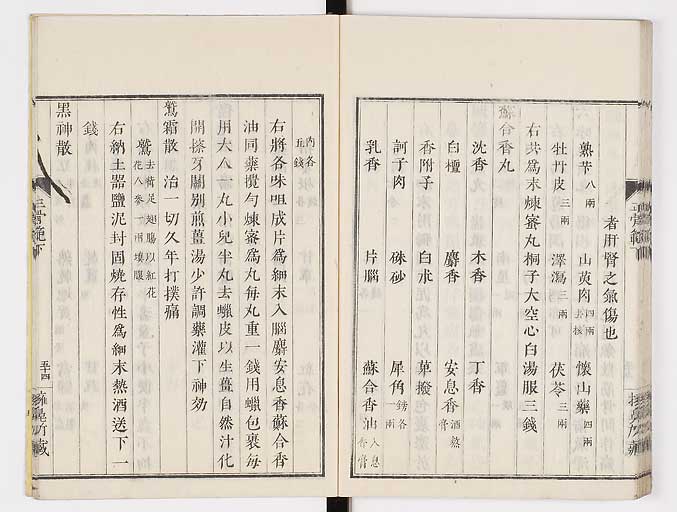 者肝腎之氣傷也
熟苄八兩 山萸肉四兩去核 懷山藥四兩
牡丹皮三兩 澤瀉三兩 茯苓三兩
右共爲末煉蜜丸桐子大空心白湯服三錢
蘇合香丸
沈香 木香 丁香
白檀 麝香 安息香酒熬膏
香附子 白朮 蓽撥
訶子肉 硃砂 犀角鎊各一兩
乳香 片腦 蘇合香油入息香膏
內各五錢
右將各味咀成片爲細末入腦麝安息香蘇合香
油同藥攪勻煉蜜爲丸每丸重一錢用蠟包裹每
用大人一丸小兒半丸去蠟皮以生薑自然汁化
開擦牙關別煎薑湯少許調藥灌下神効
鵞霜散 治一切久年打撲痛
鵞去嘴足翅腸以紅花
花八參一兩塡腹
右納土器鹽泥封固燒存性爲細末熱酒送下一
錢
黑神散
正骨範下
五十四